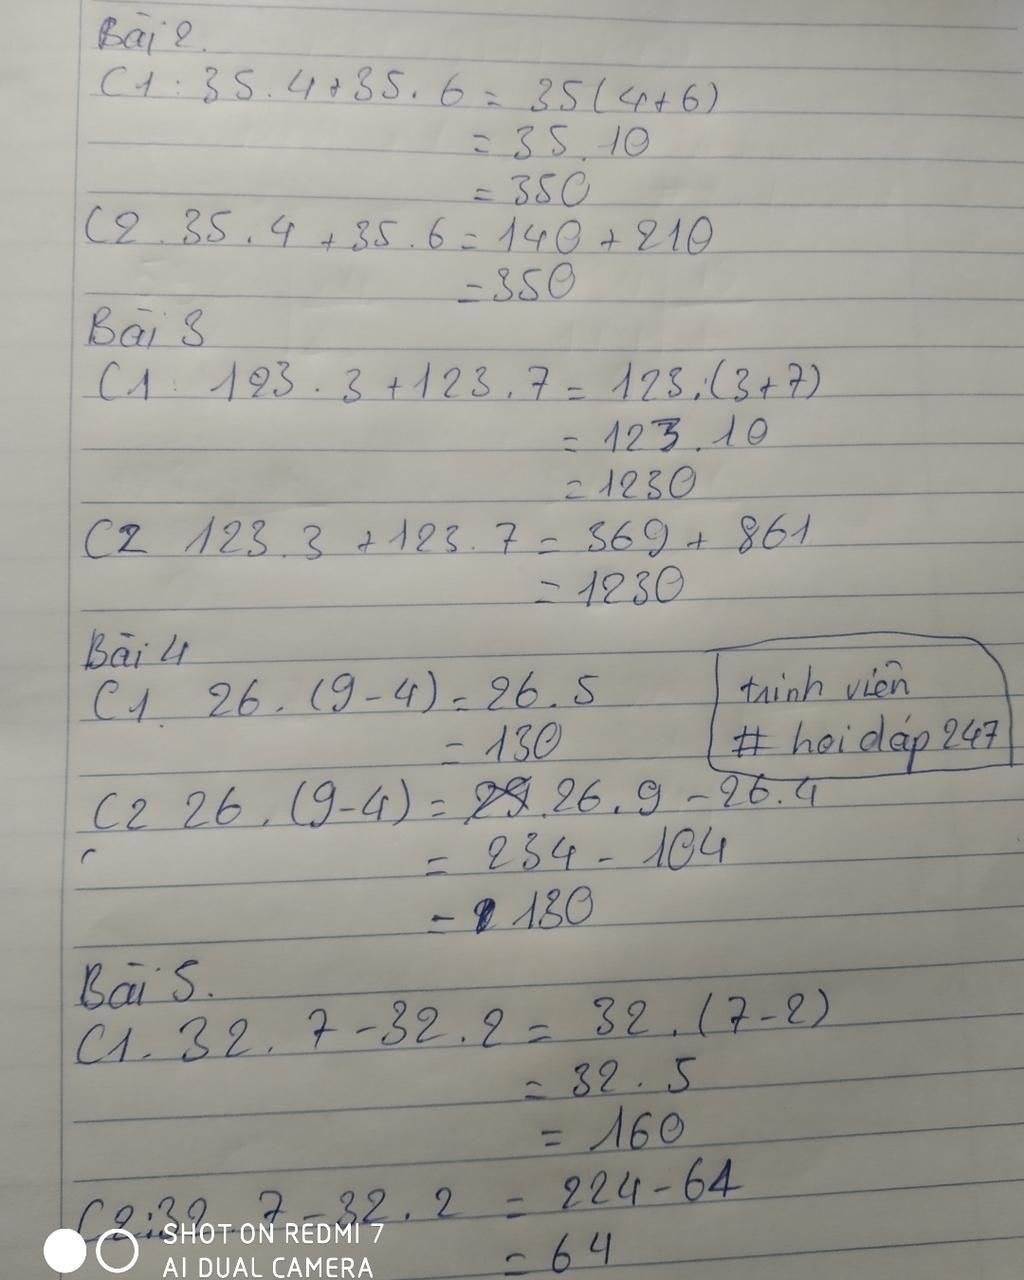 Bài 2.
C1: 35.4+35.6 = 35(4+6)
= 35.10
= 350
C2. 35.4+35.6 = 140 + 210
= 350
Bài 3
C1: 123.3+123.7 = 123.(3+7)
= 123.10
= 1230
C2 123.3+123.7 = 369 + 861
= 1230
Bài 4
C1. 26.(9-4) = 26.5
= 130
trinh viên
# hoidáp247
C2 26.(9-4) = 26.9-26.4
= 234 - 104
= 130
Bài 5.
C1. 32.7-32.2 = 32.(7-2)
= 32.5
= 160
C2:32.7-32.2 = 224-64
= 64
SHOT ON REDMI 7
AI DUAL CAMERA